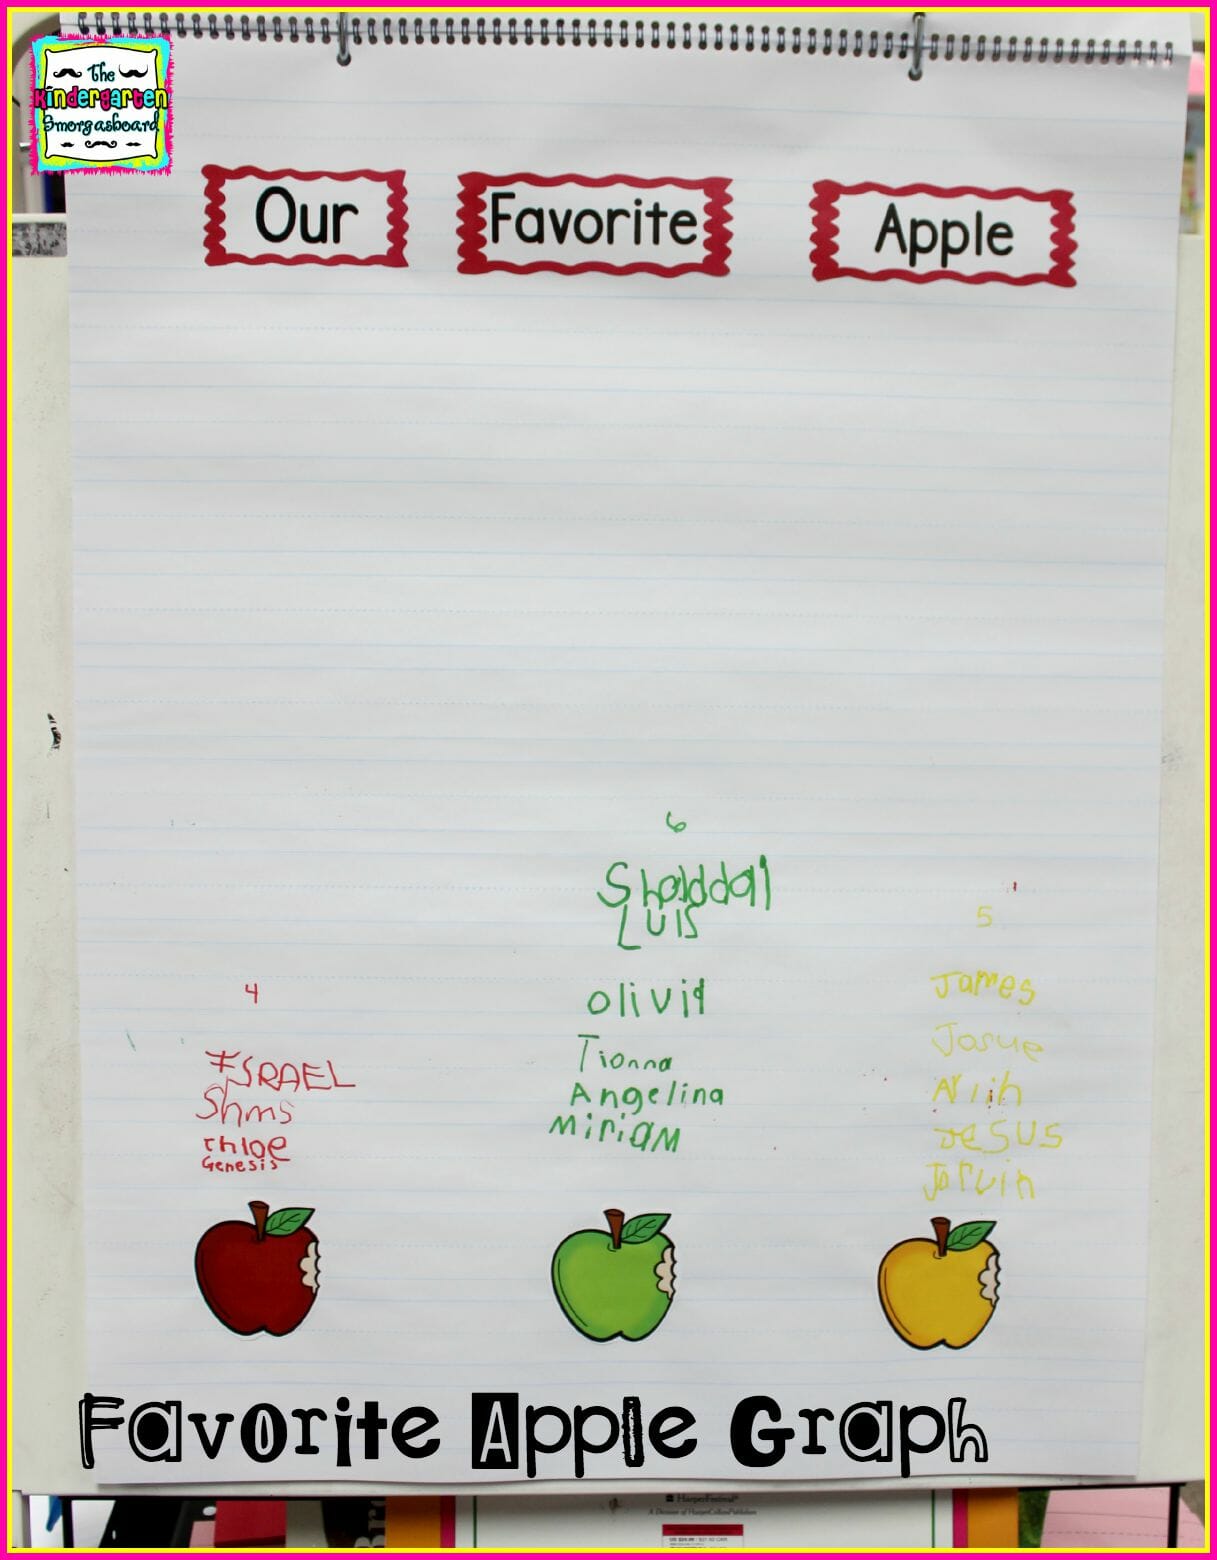 The
Kindergarten
Smorgasboard
Our Favorite Apple
6
Shalddai
Luis
olivia
Tionna
Angelina
miriam
4
ISRAEL
Shms
chloe
Genesis
5
James
Josue
JESUS
Jarvin
Favorite Apple Graph
HarperFestival
A Division of HarperCollinsPublishers